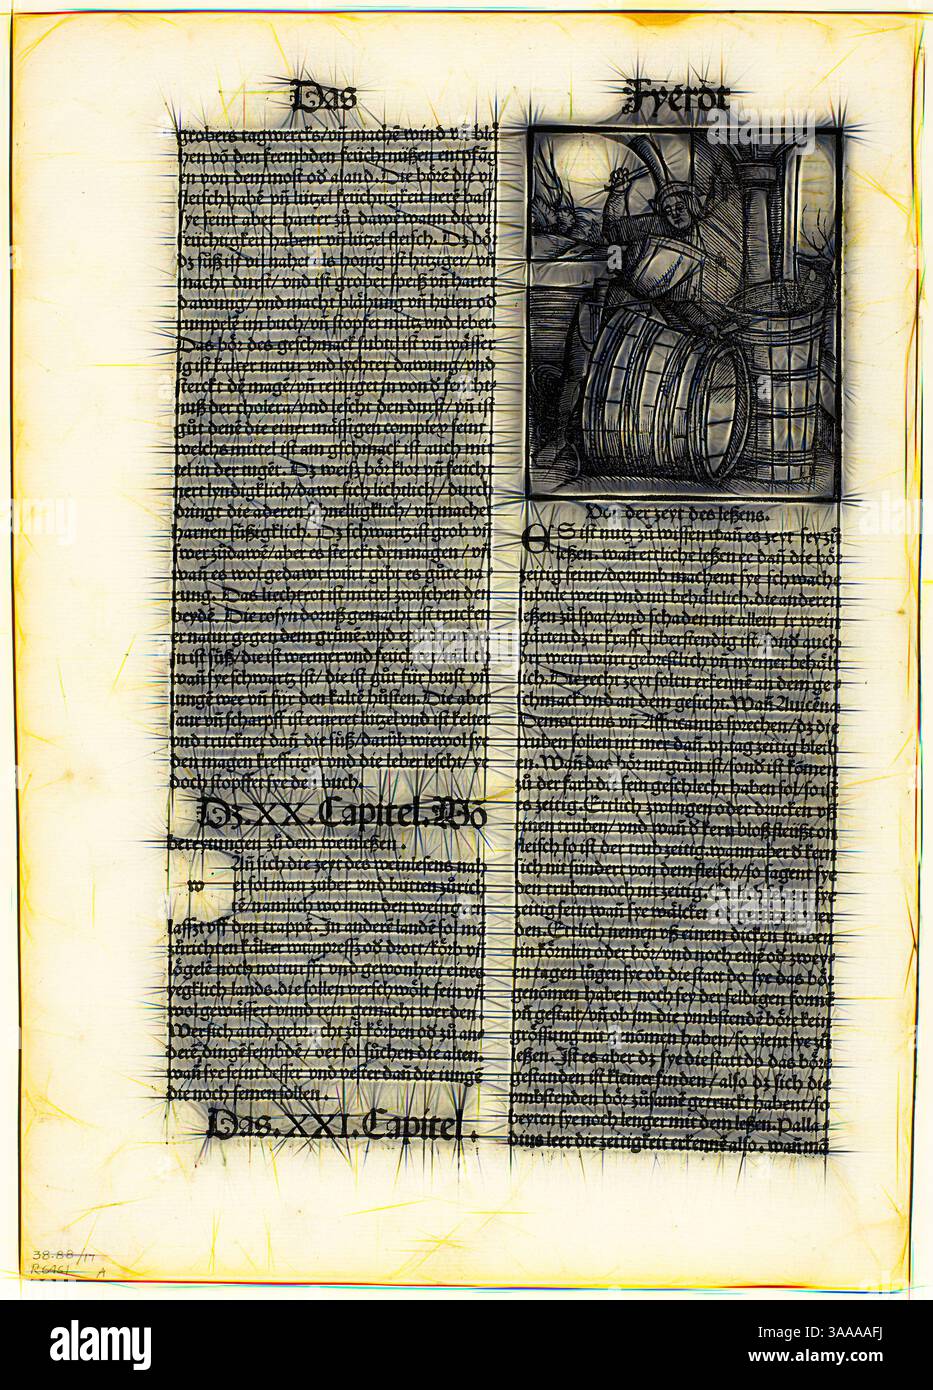 Das
Fyerdt
grobers tagwercks/vñ machē wind vñ bla
hen vō den frembden feüchtnüßen entpfāg
en von dem most od aland. Die börē die vi
fleisch habē vñ lützel feüchtigkeit
sye seint aber harter zů
feüchtigkeit habent vñ lützel fleisch. Dz bör
dz süß ist hitziger/vñ
macht durst/vnd ist grober speiß vñ hart
dawung/vnd macht blähung vñ
im buch/vñ stopfet miltz vnd leber.
Das bör des geschmack subtil ist vñ wässer
ig ist kalter natur vnd lychter dawung/vnd
sterckt dē magē/vñ reiniget in von
der cholera/vnd lescht den durst/vñ ist
gůt denē die einer mässigen complex seint
welchs mittel ist am gschmack ist auch mit
tel in der Dz weiß bör klor vñ feücht
sich lichtlich/durch
dringt die aderen schnelligklich/vñ machet
harnen süßigklich. Dz schwartz ist grob vñ
swer zůdawē/aber es sterckt den magen/vñ
wañ es wol gedawt würt gibt es gůte na
rung. Das liechtrot ist mittel zwischen den
beyden. Die rosyn doruß gemacht ist trucken
er natur gegen dem grünē vnd
ist süß/die ist wermer vnd feuchter
wañ sye schwartz ist/die ist gůt für brust vñ
lungē wee vñ für den kaltē hůsten. Die aber
saur vñ scharpff ist erneret lützel vnd ist kelter
vnd truckner dañ die süß/darüb wiewol sye
den magen krefftiget vnd die leber lescht/ye
doch stopffet sye de buch.
Dz.XX.Capitel.Vō
bereytungen zů dem weinleßen.
w
Añ sich die zeyt des weinlesens nah
et sol man zuber vnd butten zůrich
tē/namlich wo man den wein
laßt vff den trappē. In anderē landē sol mā
zůrichten kälter weinpress od trott/körb vñ
lögelē noch noturfft vnd gewonheit eines
yegklich lands. die sollen verschwölt sein vñ
wol gewässert vnnd rein gemacht werden.
Wer sich auch gebrucht zů körben od zů an
derē dingē sembdē/ der sol sůchen die alten.
wañ sye seint besser vnd vester dañ die iungē
die noch semen sollen.
Das.XXI.Capitel.
Von der zeyt des leßens.
ES ist nutz zů wissen wañ es zeyt sey zů
leßen. wañ ettliche leßen er dañ die bör
zeytig seint/dorumb machent sye schwache
subtile wein vnd nit behältlich. die anderen
leßen zů spat/vnd schaden nit allein ir wein
gärten dz ir krafft überstendig ist/sund auch
der wein würt gebrestlich vñ nymer behält
lich. Die recht zeyt soltu erkennē an dem ge
schmack vnd an dem gesicht. Wañ Auicēna
Democritus vñ Affricanus sprechen/dz die
truben sollen nit mer dañ vj. tag zeitig bleib
en. Wañ das bör nit grün ist/sond ist kōmen
zů der farb dz sein geschlecht haben sol/so ist
es zeitig. Ettlich zwingen oder drucken vß
einen truben/vnd wañ d kern bloß fleüßt on
fleisch so ist der trub zeitig. wann aber d kern
sich nit sündert von dem fleisch/so sagent sye
den truben noch nit zeitig. Ettlich
zeytig sein wañ sye wälcker
den. Ettlich nemen vß einem dicken truben
ein körnlin oder bör/vnd noch einē od zwey
en tagen lůgen sye ob die statt do sye das bör
genōmen haben noch sey der selbigen formē
vñ gestalt/vñ ob im die vmbstendē börē kein
grössung nit genōmen haben/so ylent sye zů
leßen. Ist es aber dz sye die statt do das börē
gestanden ist kleiner finden/also dz sich die
vmbstenden bör zůsamē getruckt habent/so
beyten sye noch lenger mit dem leßen. Palla
dius leer die zeitigkeit erkennē also. wañ mā
38-88/17
R6461 A
alamy
Image ID: 3AAAAFJ
www.alamy.com